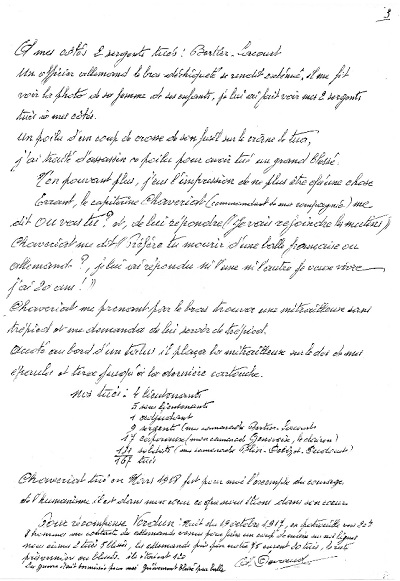 3
A mes côtés 2 sergents tués : Bertier - Lacourt
Un officier allemand le bras déchiqueté se rendit exténué, il me fit
voir la photo de sa femme et ses enfants, je lui ai fait voir mes 2 sergents
tués à mes côtés.
Un poilu d'un coup de crosse de son fusil sur le crâne le tua,
j'ai traité d'assassin ce poilu pour avoir tué un grand blessé.
N'en pouvant plus, j'eus l'impression de ne plus être qu'une chose
errant, le capitaine Chaveriat (commandant de ma compagnie) me
dit OU vas tu ? et, de lui répondre "Je vais rejoindre les mutins"
Chaveriat me dit "Préfère tu mourir d'une balle française ou
allemande ?, je lui ai répondu ni l'une ni l'autre je veux vivre
j'ai 20 ans !"
Chaveriat me prenant par le bras trouva une mitrailleuse sans
trépied et me demanda de lui servir de trépied.
au bord d'un talus il plaça la mitrailleuse sur le dos et mes
épaules et tira jusqu'à la dernière cartouche.
Nos tués : 4 lieutenants
5 sous lieutenants
1 adjudant
9 sergents (mes camarades Bertier - Lacourt
17 caporaux (mon camarade
131 soldats (mes camarades
167 tués
Chaveriat tué en Mars 1918 fut pour moi l'exemple du courage
de l'humanisme, il est dans mon cœur ce que nous étions dans son cœur.
récompense Verdun : nuit du 19 octobre 1917, en patrouille
hommes au contact des allemands venus pour faire un coup de main
nous eûmes 2 tués 5 blessés, les allemands pris furent 30 tués, le reste
prisonniers ou blessés. ils étaient 120
La guerre était terminée pour moi grièvement blessé par balle